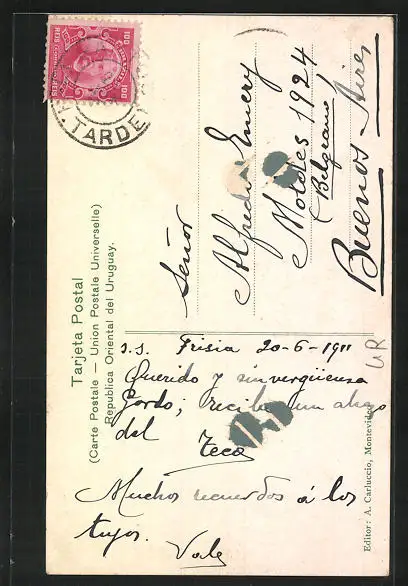 100 REIS 100
TARDE
Tarjeta Postal
(Carte Postale — Union Postale Universelle)
Republica Oriental del Uruguay.
Señor
Alfredo Emery
Moldes 1924
(Belgrano)
Buenos Aires
s.s. Frisia 20-6-1911
Querido y sinvergüensa
Gordo; recibe un abrazo
del Teco
Muchos recuerdos á los
tuyos. Vale
UR
Editor: A. Carluccio, Montevideo